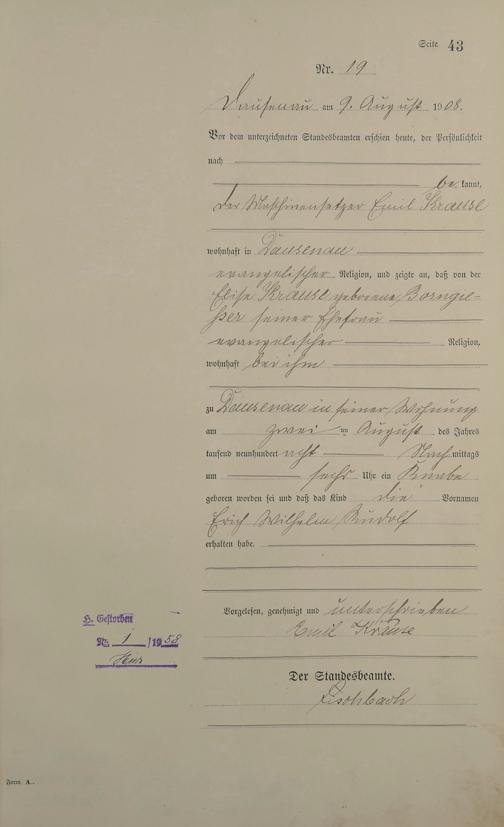 Seite 43
Nr. 19
Dausenau am 9. August 1908.
Vor dem unterzeichneten Standesbeamten erschien heute, der Persönlichkeit
nach
be kannt,
der Maschinensetzer Emil Krause
wohnhaft in Dausenau
evangelischer Religion, und zeigte an, daß von der
Elise Krause geborene Borngie-
ßer seiner Ehefrau
evangelischer Religion,
wohnhaft bei ihm
zu Dausenau in seiner Wohnung
am zwei ten August des Jahres
tausend neunhundert acht Nach mittags
um sechs Uhr ein Knabe
geboren worden sei und daß das Kind die Vornamen
Erich Wilhelm Rudolf
erhalten habe.
Vorgelesen, genehmigt und unterschrieben
Emil Krause
H. Gestorben
Nr. 1 /1958
Der Standesbeamte.
Fischbach
Form. A.